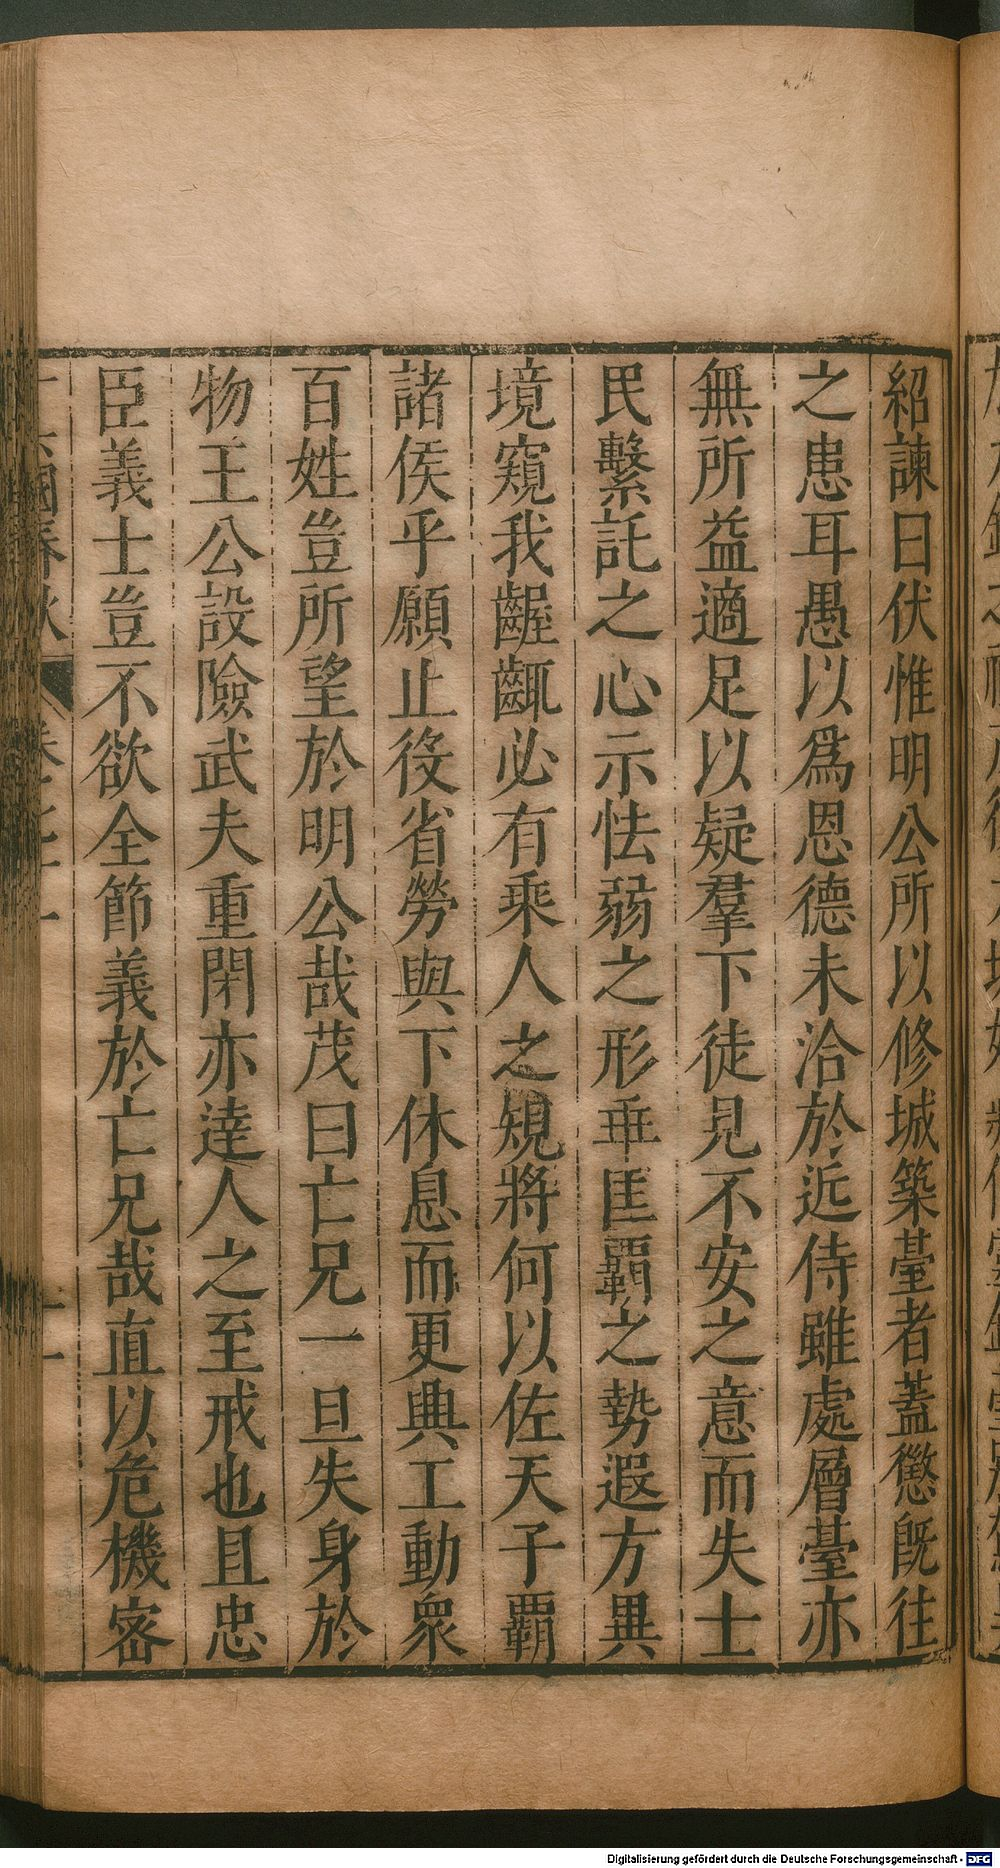 紹諫曰伏惟明公所以修城築臺者蓋懲旣往
之患耳愚以爲恩德未洽於近侍雖處層臺亦
無所益適足以疑羣下徒見不安之意而失士
民繫託之心示怯弱之形乖匡霸之勢遐方異
境窺我齷齪必有乘人之規將何以佐天子霸
諸侯乎願止役省勞與下休息而更興工動衆
百姓豈所望於明公哉茂曰亡兄一旦失身於
物王公設險武夫重閉亦達人之至戒也且忠
臣義士豈不欲全節義於亡兄哉直以危機密
國春秋
Digitalisierung gefördert durch die Deutsche Forschungsgemeinschaft - DFG